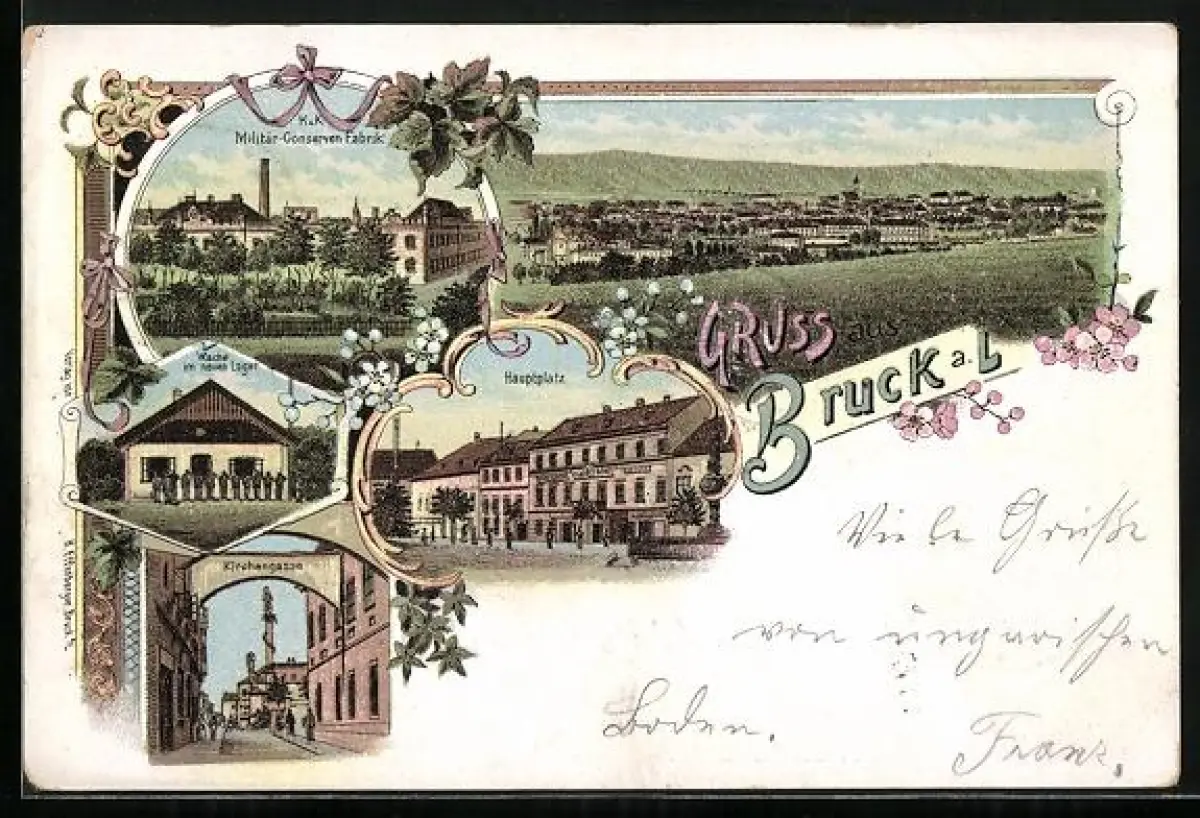 K.u.K.
Militär-Conserven Fabrik
Wache
im neuen Lager
Hauptplatz
Kirchengasse
GRUSS aus
Bruck a. L
Viele Grüße
von ungarischen
Boden.
Franz.
Verlag von